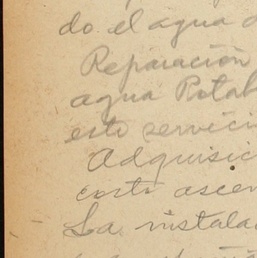 do el agua
Reparación
agua Potab
este servici
Adquisic
costo ascen
La instala